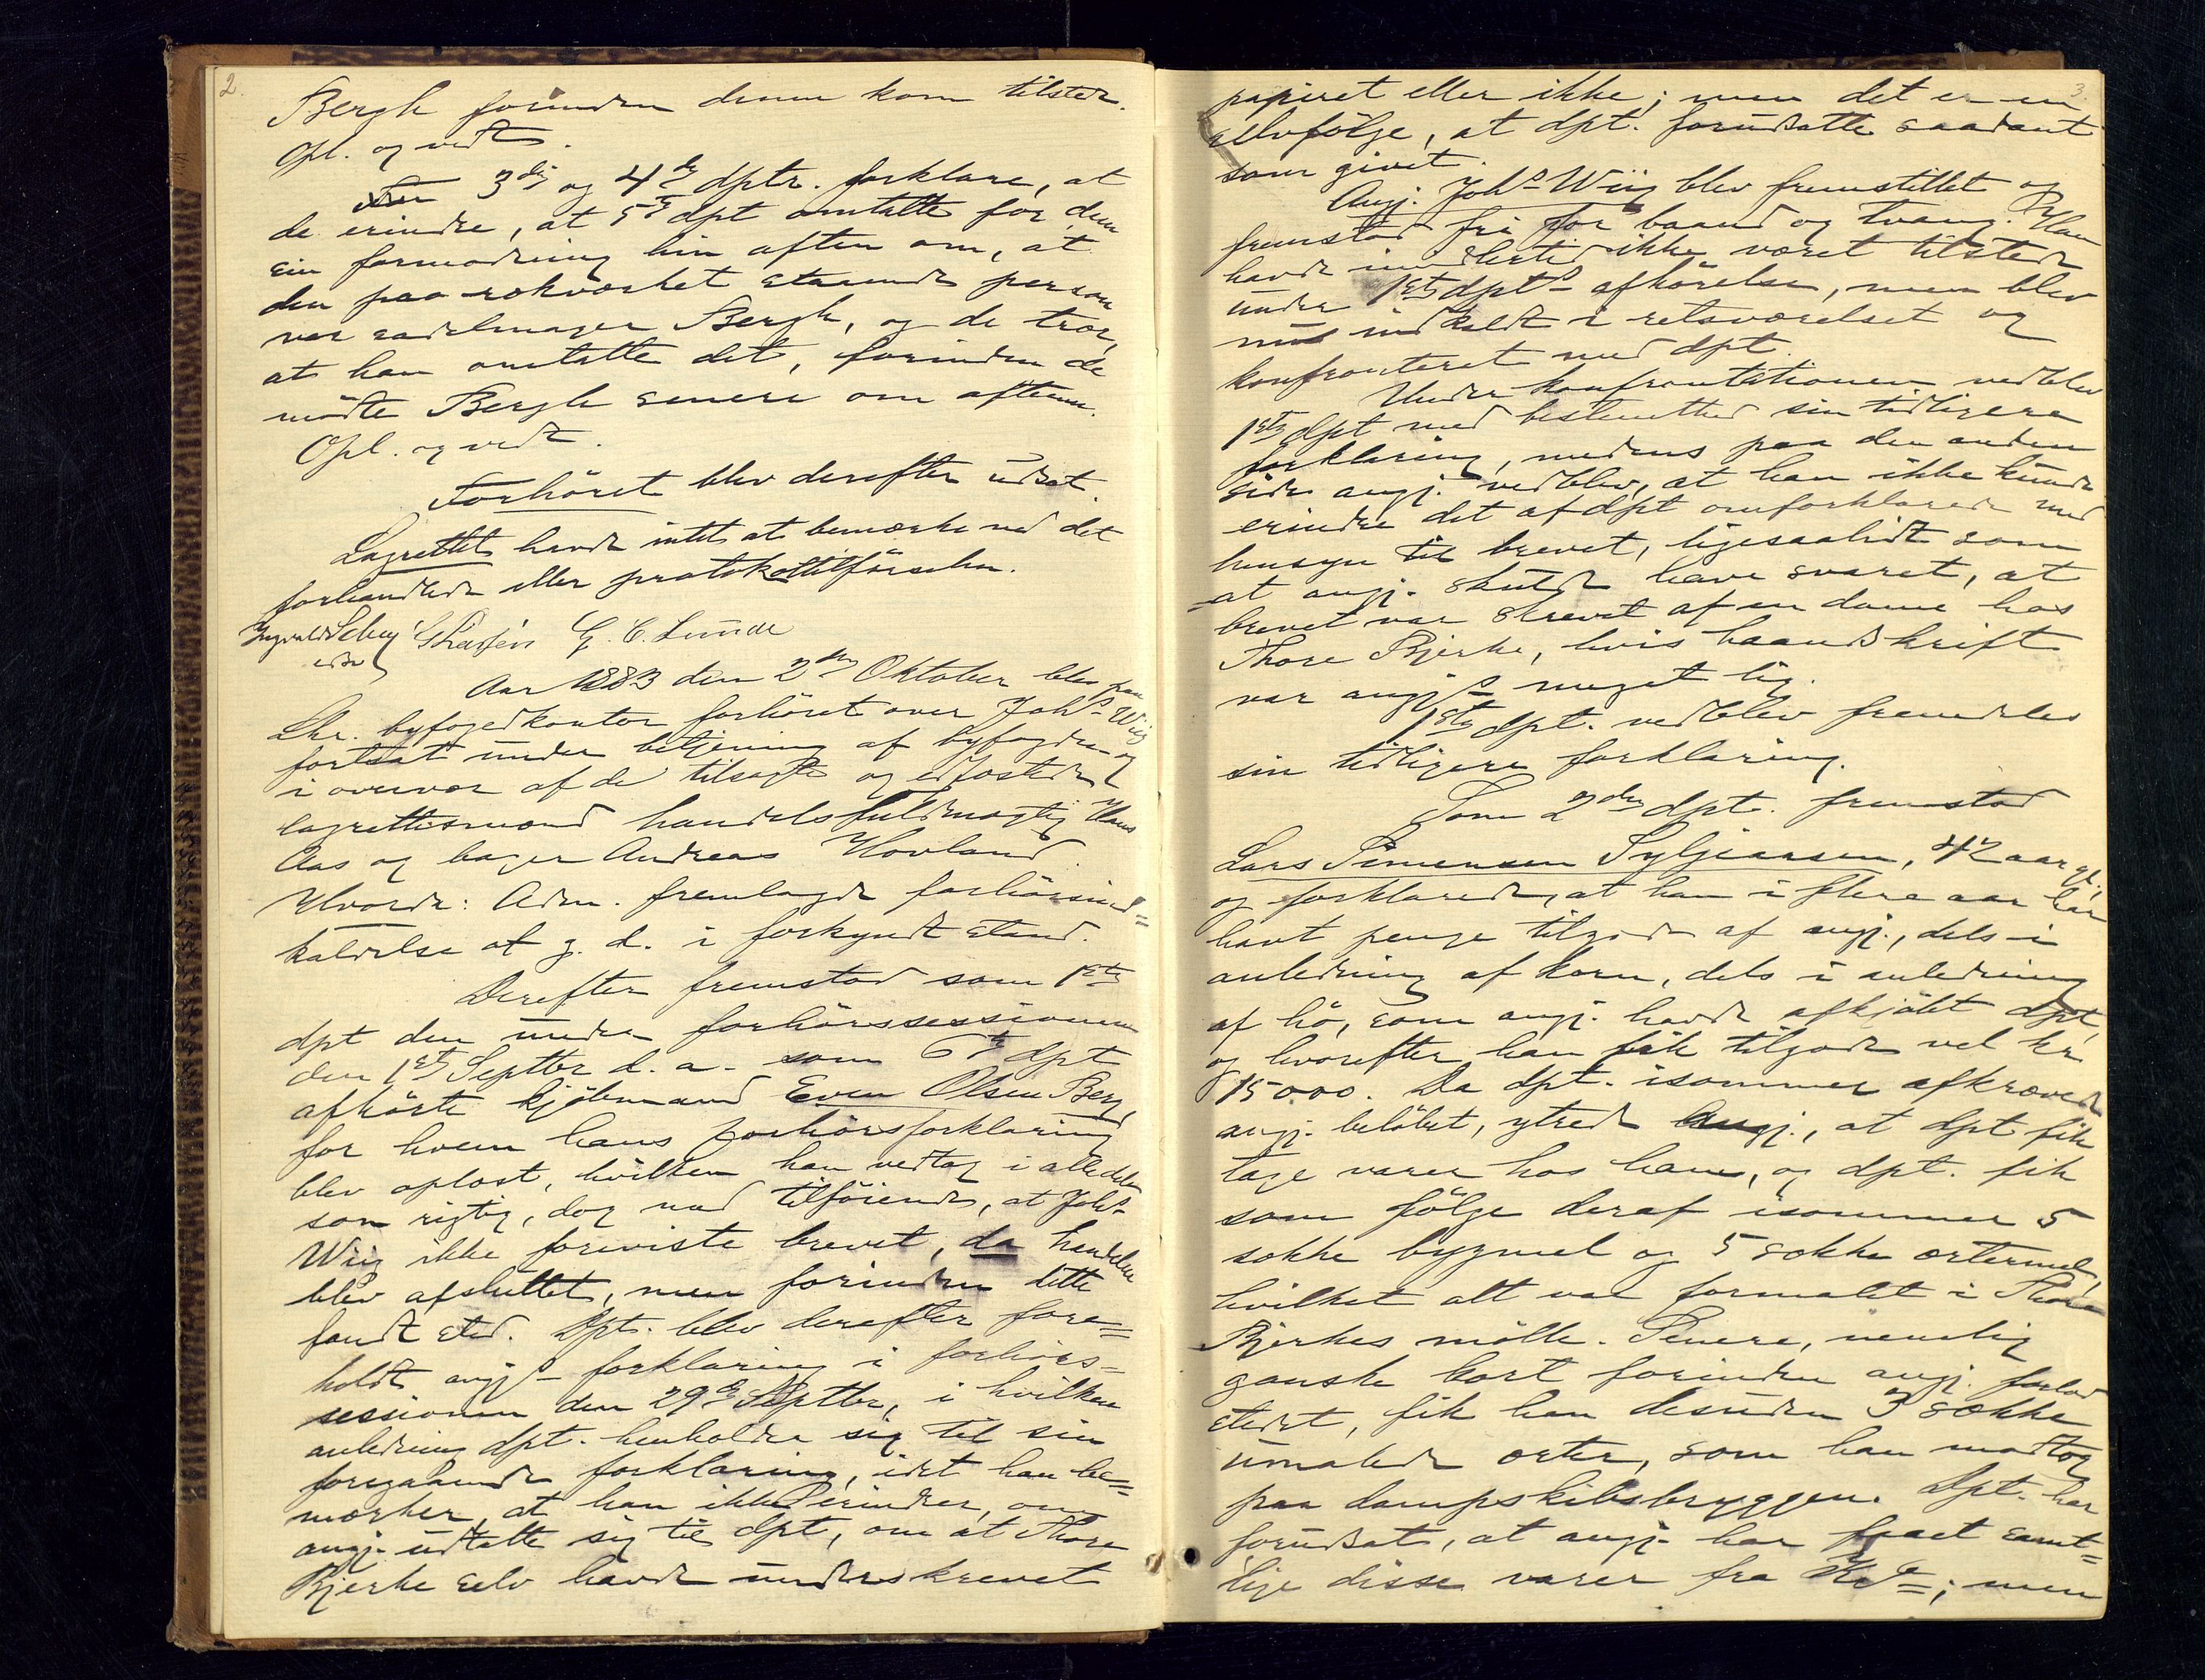 2.
Bergh forinden denne kom tilstede.
Opl. og vedt.
3die og 4de dptr. forklare, at
de erindre, at 5te dpt omtalte for dem
sin formodning hin aften om, at
den paa rækværket staaende person
var sadelmager Bergh, og de tror,
at han omtalte det, forinden de
mødte Bergh senere om aftenen.
Opl. og vedt.
Forhöret blev derefter udsat.
Lagrettet havde intet at bemærke ved det
forhandlede eller protokoltilförselen.
G. C. Lunde
Aar 1883 den 2den Oktober blev paa
Lhr. byfogedkontor forhöret over Johs Wiig
fortsat under betjening af byfogden og
i overvær af de tilsagte og edfæstede
lagrettesmænd handelsfuldmægtig Hans
Aas og bager Andreas Hovland.
Hvorda: Adm. fremlagde forhörsind=
kaldelse af g. d. i forkyndt stand.
Derefter fremstod som 1ste
dpt den under forhörssessionen
den 1ste Septbr d. a. som 6te dpt
afhörte kjöbmand Even Olsen Berg
for hvem hans forhörsforklaring
blev oplæst, hvilken han vedtog i alle dele
som rigtig, dog med tilföiende, at Johs
Wiig ikke foreviste brevet, da handelen
blev afsluttet, men forinden dette
fandt sted. Dpt. blev derefter fore=
holdt angjs forklaring i forhörs=
sessionen den 29de Septbr, i hvilken
anledning dpt. henholder sig til sin
foregaaende forklaring, idet han be=
mærker, at han ikke erindrer, om
angj. udtalte sig til dpt, om at Thore
Bjerke selv havde underskrevet
3.
papiret eller ikke; men det er en
selvfölge, at dpt. forudsatte saadant
som givet.
Angj. Johs Wiig blev fremstillet og
fremstod fri for baand og tvang. Han
havde imidlertid ikke været tilstede
under 1ste dpts afhörelse, men blev
nu indkaldt i retsværelset og
konfronteret med dpt.
Under konfrontationen vedblev
1ste dpt med bestemthed sin tidligere
forklaring, medens paa den anden
side angj. vedblev, at han ikke kunde
erindre det af dpt omforklarede med
hensyn til brevet, ligesaalidt som
at angj. skulde have svaret, at
brevet var skrevet af en dame hos
Thore Bjerke, hvis haandskrift
var angjs meget lig.
1ste dpt. vedblev fremdeles
sin tidligere forklaring.
Som 2den dpt. fremstod
Lars Simensen Syljeaasen, 42 aar gl.,
og forklarede, at han i flere aar har
havt penge tilgode af angj., dels i
anledning af korn, dels i anledning
af hö, som angj. havde afkjöbt dpt,
og hvorefter han fik tilgode vel kr
15000. Da dpt. isommer afkrævede
angj. belöbet, ytrede angj., at dpt fik
tage varer hos ham, og dpt. fik
som fölge deraf isommer 5
sække bygmel og 5 sække ertemel,
hvilket alt var formalet i Thore
Bjerkes mölle. Senere, nemlig
ganske kort forinden angj. forlod
stedet, fik han desuden 3 sække
umalede erter, som han modtog
paa dampskibsbryggen. Dpt. har
forudsat, at angj. har faaet samt=
lige disse varer fra ; men